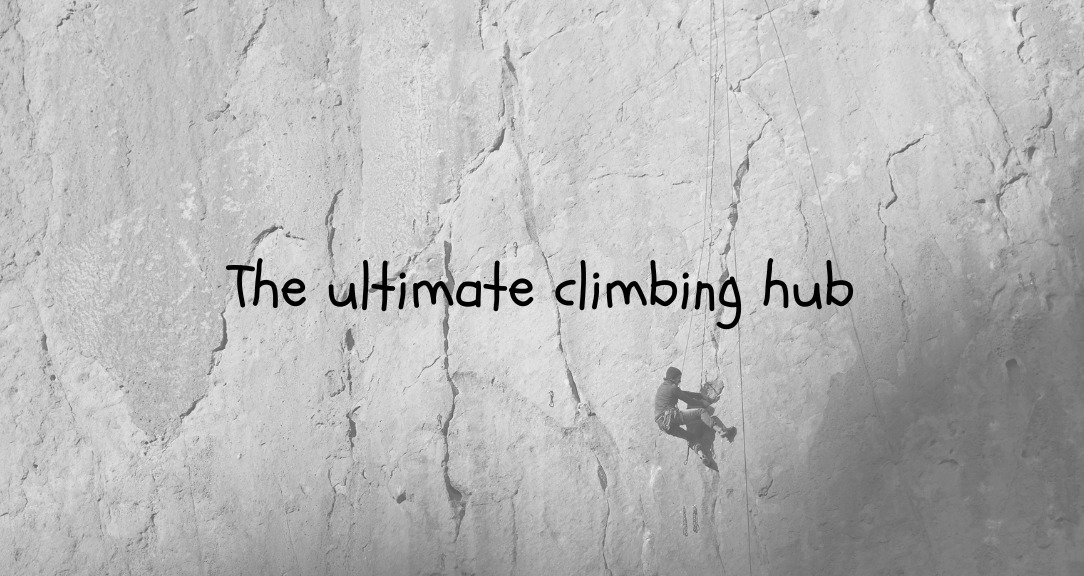 The ultimate climbing hub